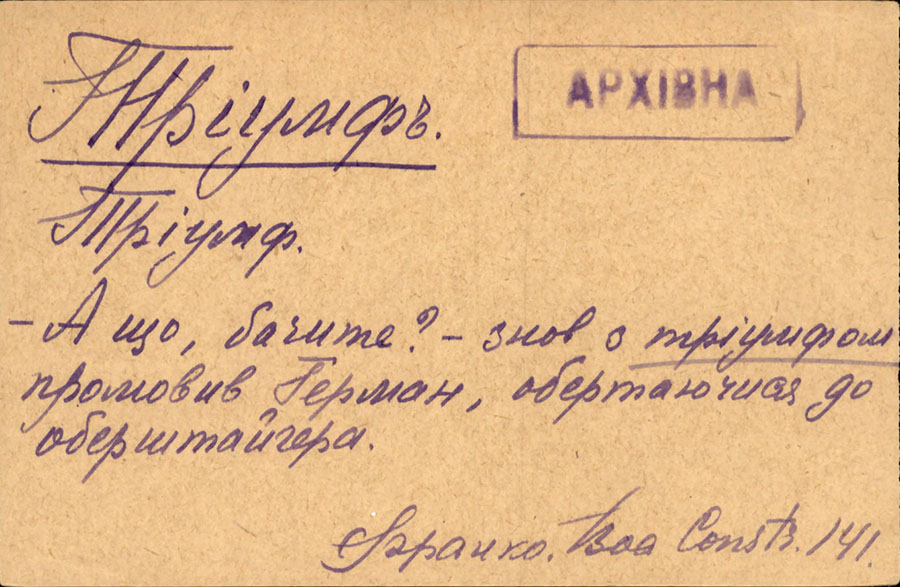 Тріумфъ.
АРХІВНА
Тріумф.
- А що, бачите? - знов з тріумфом
промовив Герман, обертаючися до
оберштайгера.
Франко. Boa Constr. 141.